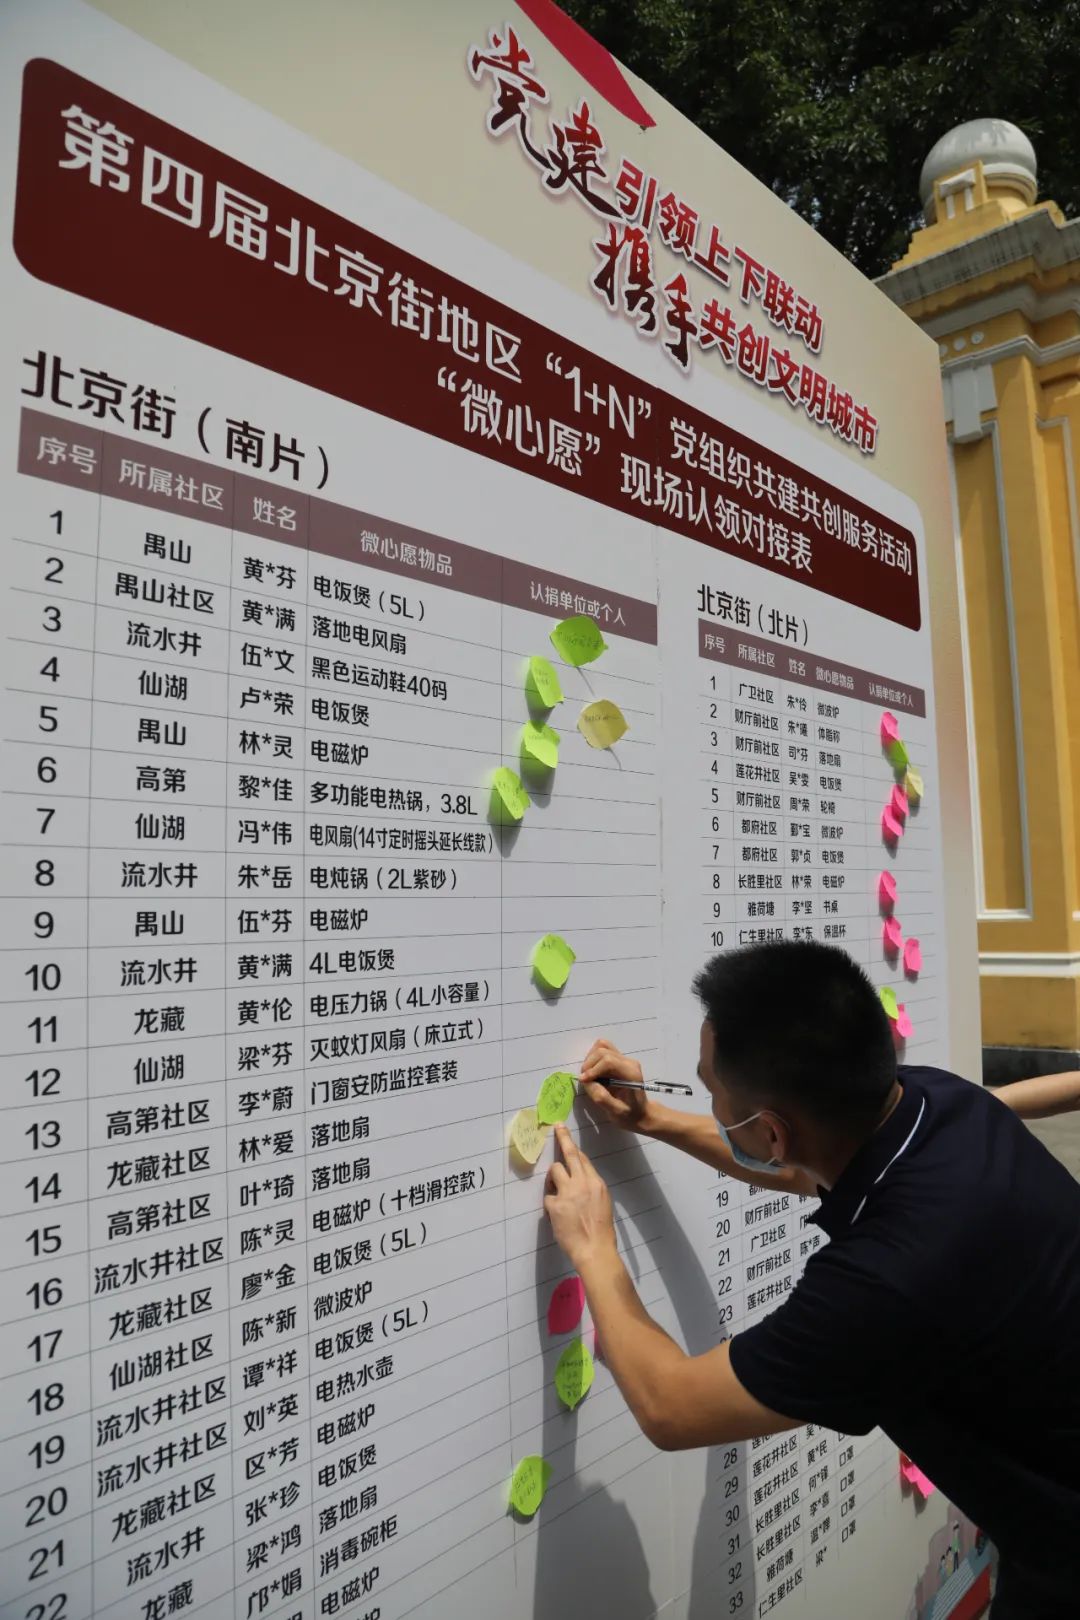 党建引领上下联动
携手共创文明城市
第四届北京街地区“1+N”党组织共建共创服务活动
“微心愿”现场认领对接表
北京街（南片）
序号 所属社区 姓名 微心愿物品 认捐单位或个人
1 禺山 黄*芬 电饭煲（5L）
2 禺山社区 黄*满 落地电风扇
3 流水井 伍*文 黑色运动鞋40码
4 仙湖 卢*荣 电饭煲
5 禺山 林*灵 电磁炉
6 高第 黎*佳 多功能电热锅，3.8L
7 仙湖 冯*伟 电风扇(14寸定时摇头延长线款)
8 流水井 朱*岳 电炖锅（2L紫砂）
9 禺山 伍*芬 电磁炉
10 流水井 黄*满 4L电饭煲
11 龙藏 黄*伦 电压力锅（4L小容量）
12 仙湖 梁*芬 灭蚊灯风扇（床立式）
13 高第社区 李*蔚 门窗安防监控套装
14 龙藏社区 林*爱 落地扇
15 高第社区 叶*琦 落地扇
16 流水井社区 陈*灵 电磁炉（十档滑控款）
17 龙藏社区 廖*金 电饭煲（5L）
18 仙湖社区 陈*新 微波炉
19 流水井社区 谭*祥 电饭煲（5L）
20 流水井社区 刘*英 电热水壶
21 龙藏社区 区*芳 电磁炉
22 流水井 张*珍 电饭煲
龙藏 梁*鸿 落地扇
邝*娟 消毒碗柜
电磁炉
北京街（北片）
序号 所属社区 姓名 微心愿物品 认捐单位或个人
1 广卫社区 朱*伶 微波炉
2 财厅前社区 朱*曦 体脂称
3 财厅前社区 司*芬 落地扇
4 莲花井社区 吴*雯 电饭煲
5 财厅前社区 周*荣 轮椅
6 都府社区 鄞*宝 微波炉
7 都府社区 郭*贞 电饭煲
8 长胜里社区 林*荣 电磁炉
9 雅荷塘 李*坚 书桌
10 仁生里社区 李*东 保温杯
19
20 财厅前社区
21 广卫社区 陈*声
22 财厅前社区
23 莲花井社区
28 莲花井社区 黄*民 口罩
29 莲花井社区 何*锋 口罩
30 长胜里社区 李*喜 口罩
31 长胜里社区 口罩
32 雅荷塘 梁*
33 仁生里社区